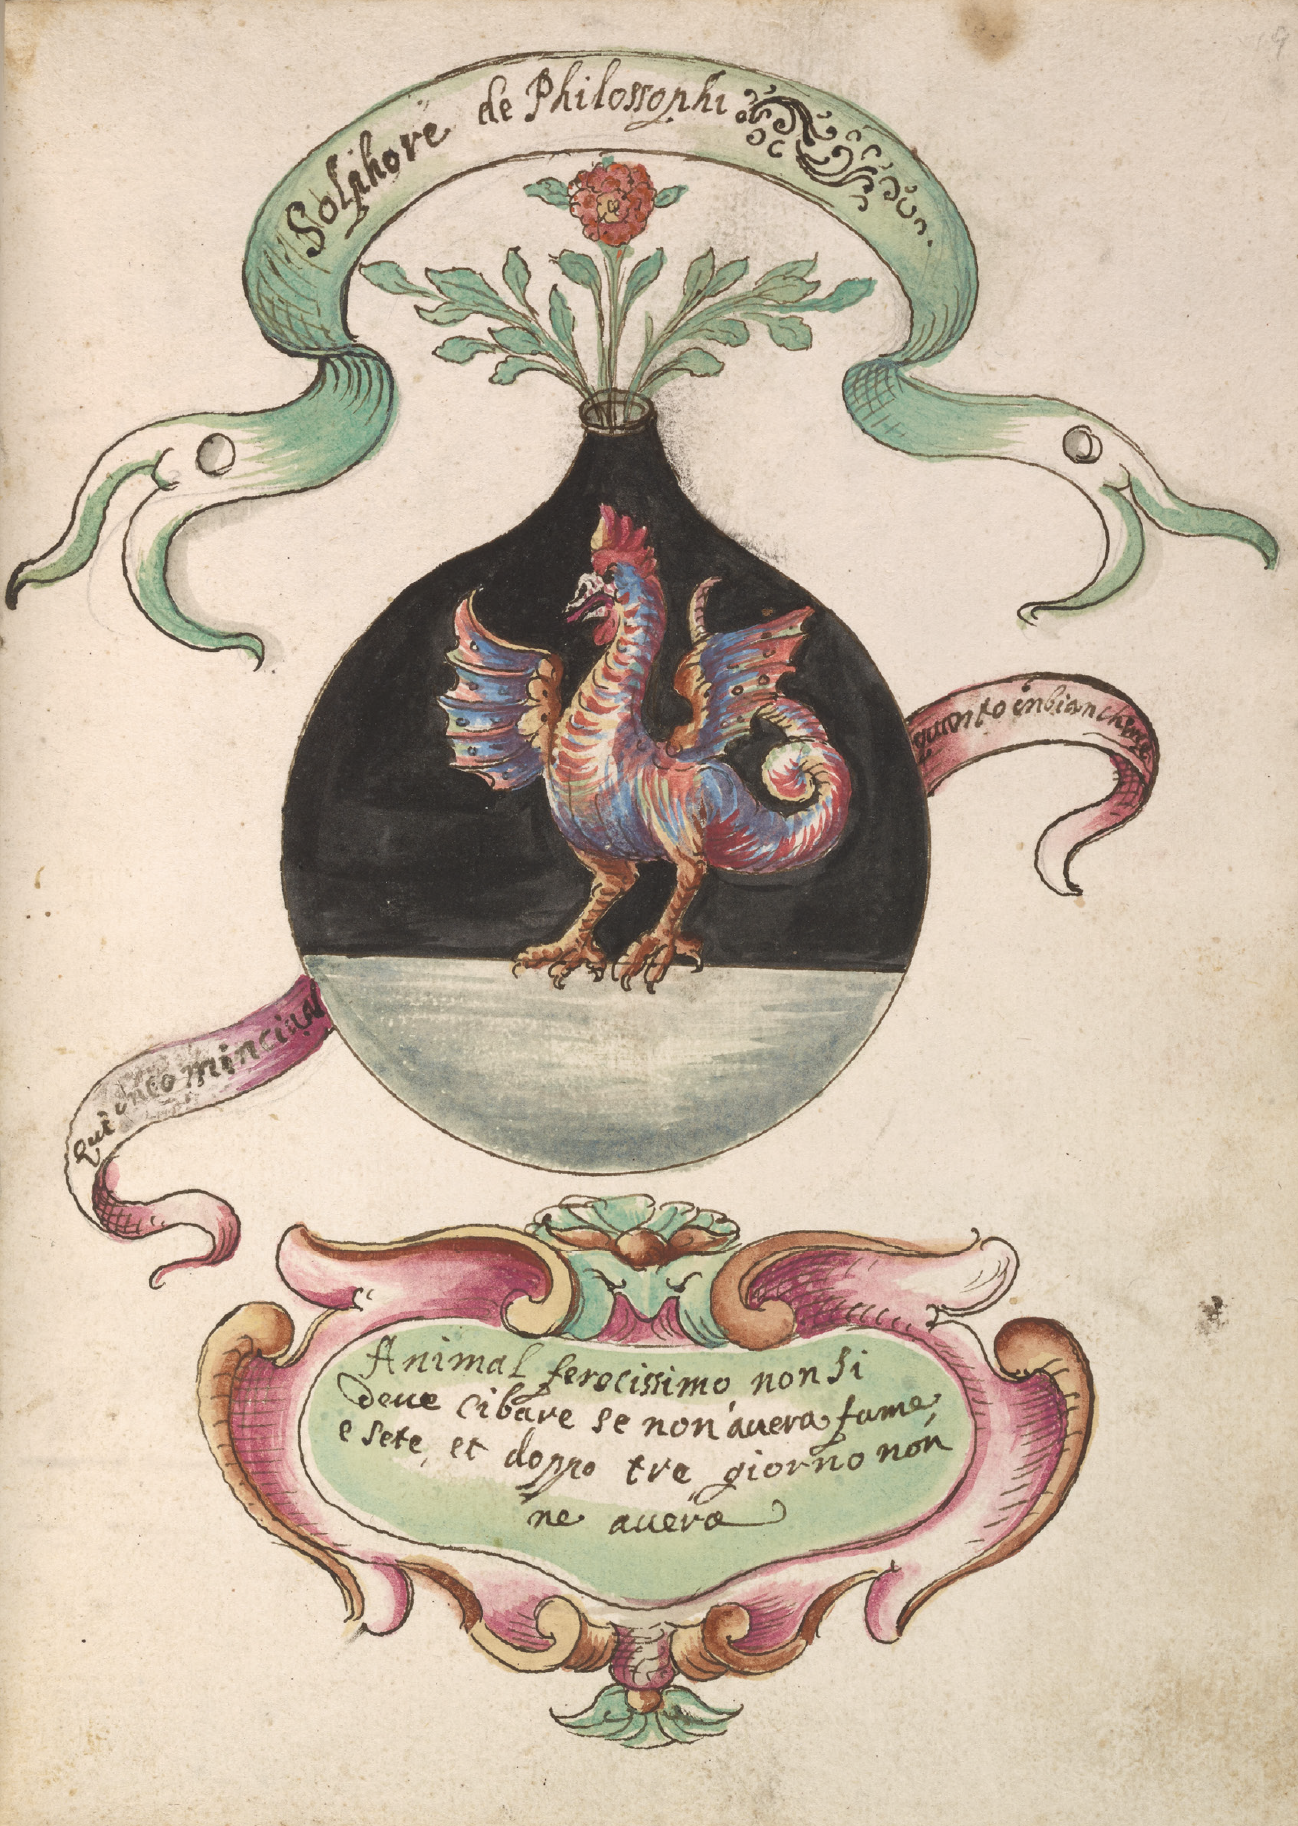 Solphore de Philossophi
quanto inbianchire
Qui incomincia
Animal ferocissimo non si
deue cibare se non auera fame
e sete, et doppo tre giorno non
ne auera